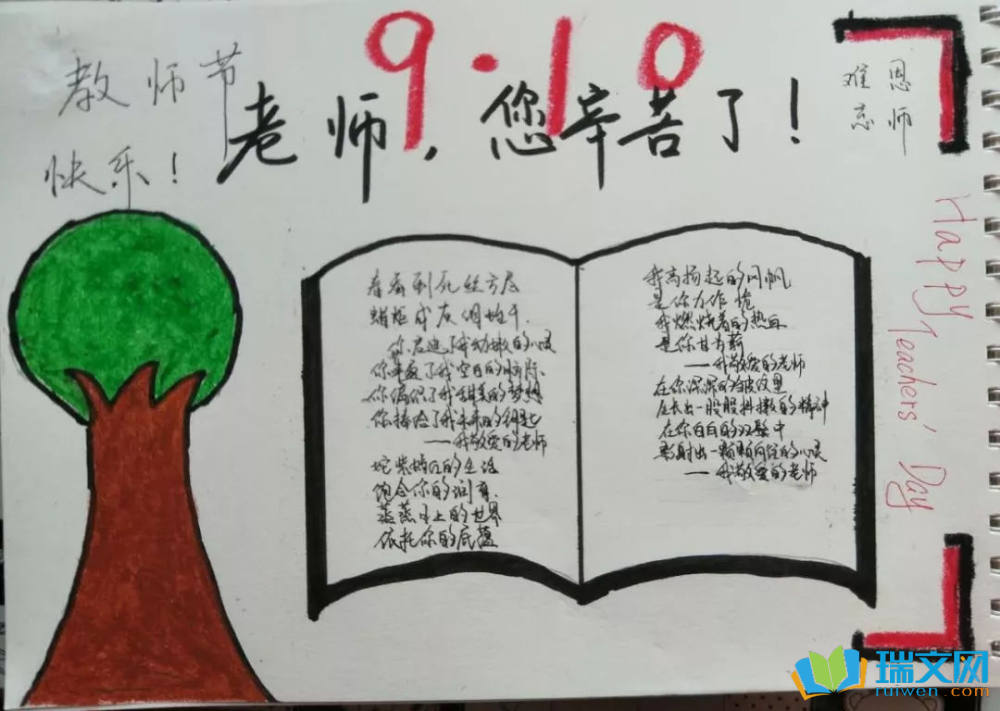 9·10
教师节
快乐！
老师，您辛苦了！
恩师
难忘
Happy Teachers' Day
春蚕到死丝方尽
蜡炬成灰泪始干
你启迪了我幼嫩的心灵
你丰盈了我空白的
你编织了我甜美的梦想
你捧给了我未来的钥匙
——我敬爱的老师
的生活
饱含你的
蒸蒸日上的世界
依托你的底蕴
我高扬起的风帆
是你力作桅
我燃烧着的热血
是你甘为薪
——我敬爱的老师
在你深深的皱纹里
生长出一股股抖擞的精神
在你白白的双鬓中
射出一颗颗向往的心灵
——我敬爱的老师
瑞文网
ruiwen.com